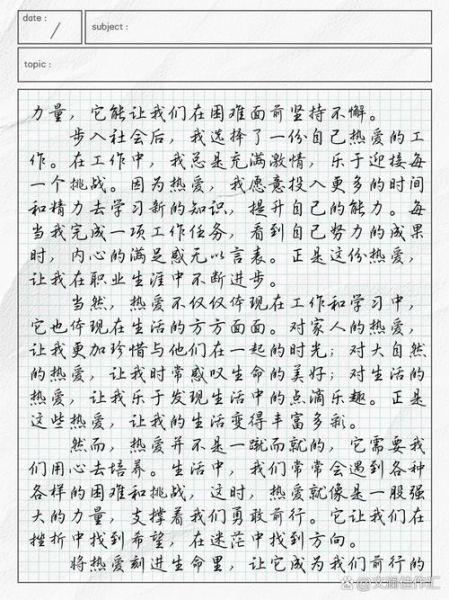 date :
subject :
topic :
力量，它能让我们在困难面前坚持不懈。
步入社会后，我选择了一份自己热爱的工
作。在工作中，我总是充满激情，乐于迎接每
一个挑战。因为热爱，我愿意投入更多的时间
和精力去学习新的知识，提升自己的能力。每
当我完成一项工作任务，看到自己努力的成果
时，内心的满足感无以言表。正是这份热爱，
让我在职业生涯中不断进步。
当然，热爱不仅仅体现在工作和学习中，
它也体现在生活的方方面面。对家人的热爱，
让我更加珍惜与他们在一起的时光；对大自然
的热爱，让我时常感叹生命的美好；对生活的
热爱，让我乐于发现生活中的点滴乐趣。正是
这些热爱，让我的生活变得丰富多彩。
然而，热爱并不是一蹴而就的，它需要我
们用心去培养。生活中，我们常常会遇到各种
各样的困难和挑战，这时，热爱就像是一股强
大的力量，支撑着我们勇敢前行。它让我们在
挫折中找到希望，在迷茫中找到方向。
将热爱刻进生命里，让它成为我们前行的
文澜佳作汇